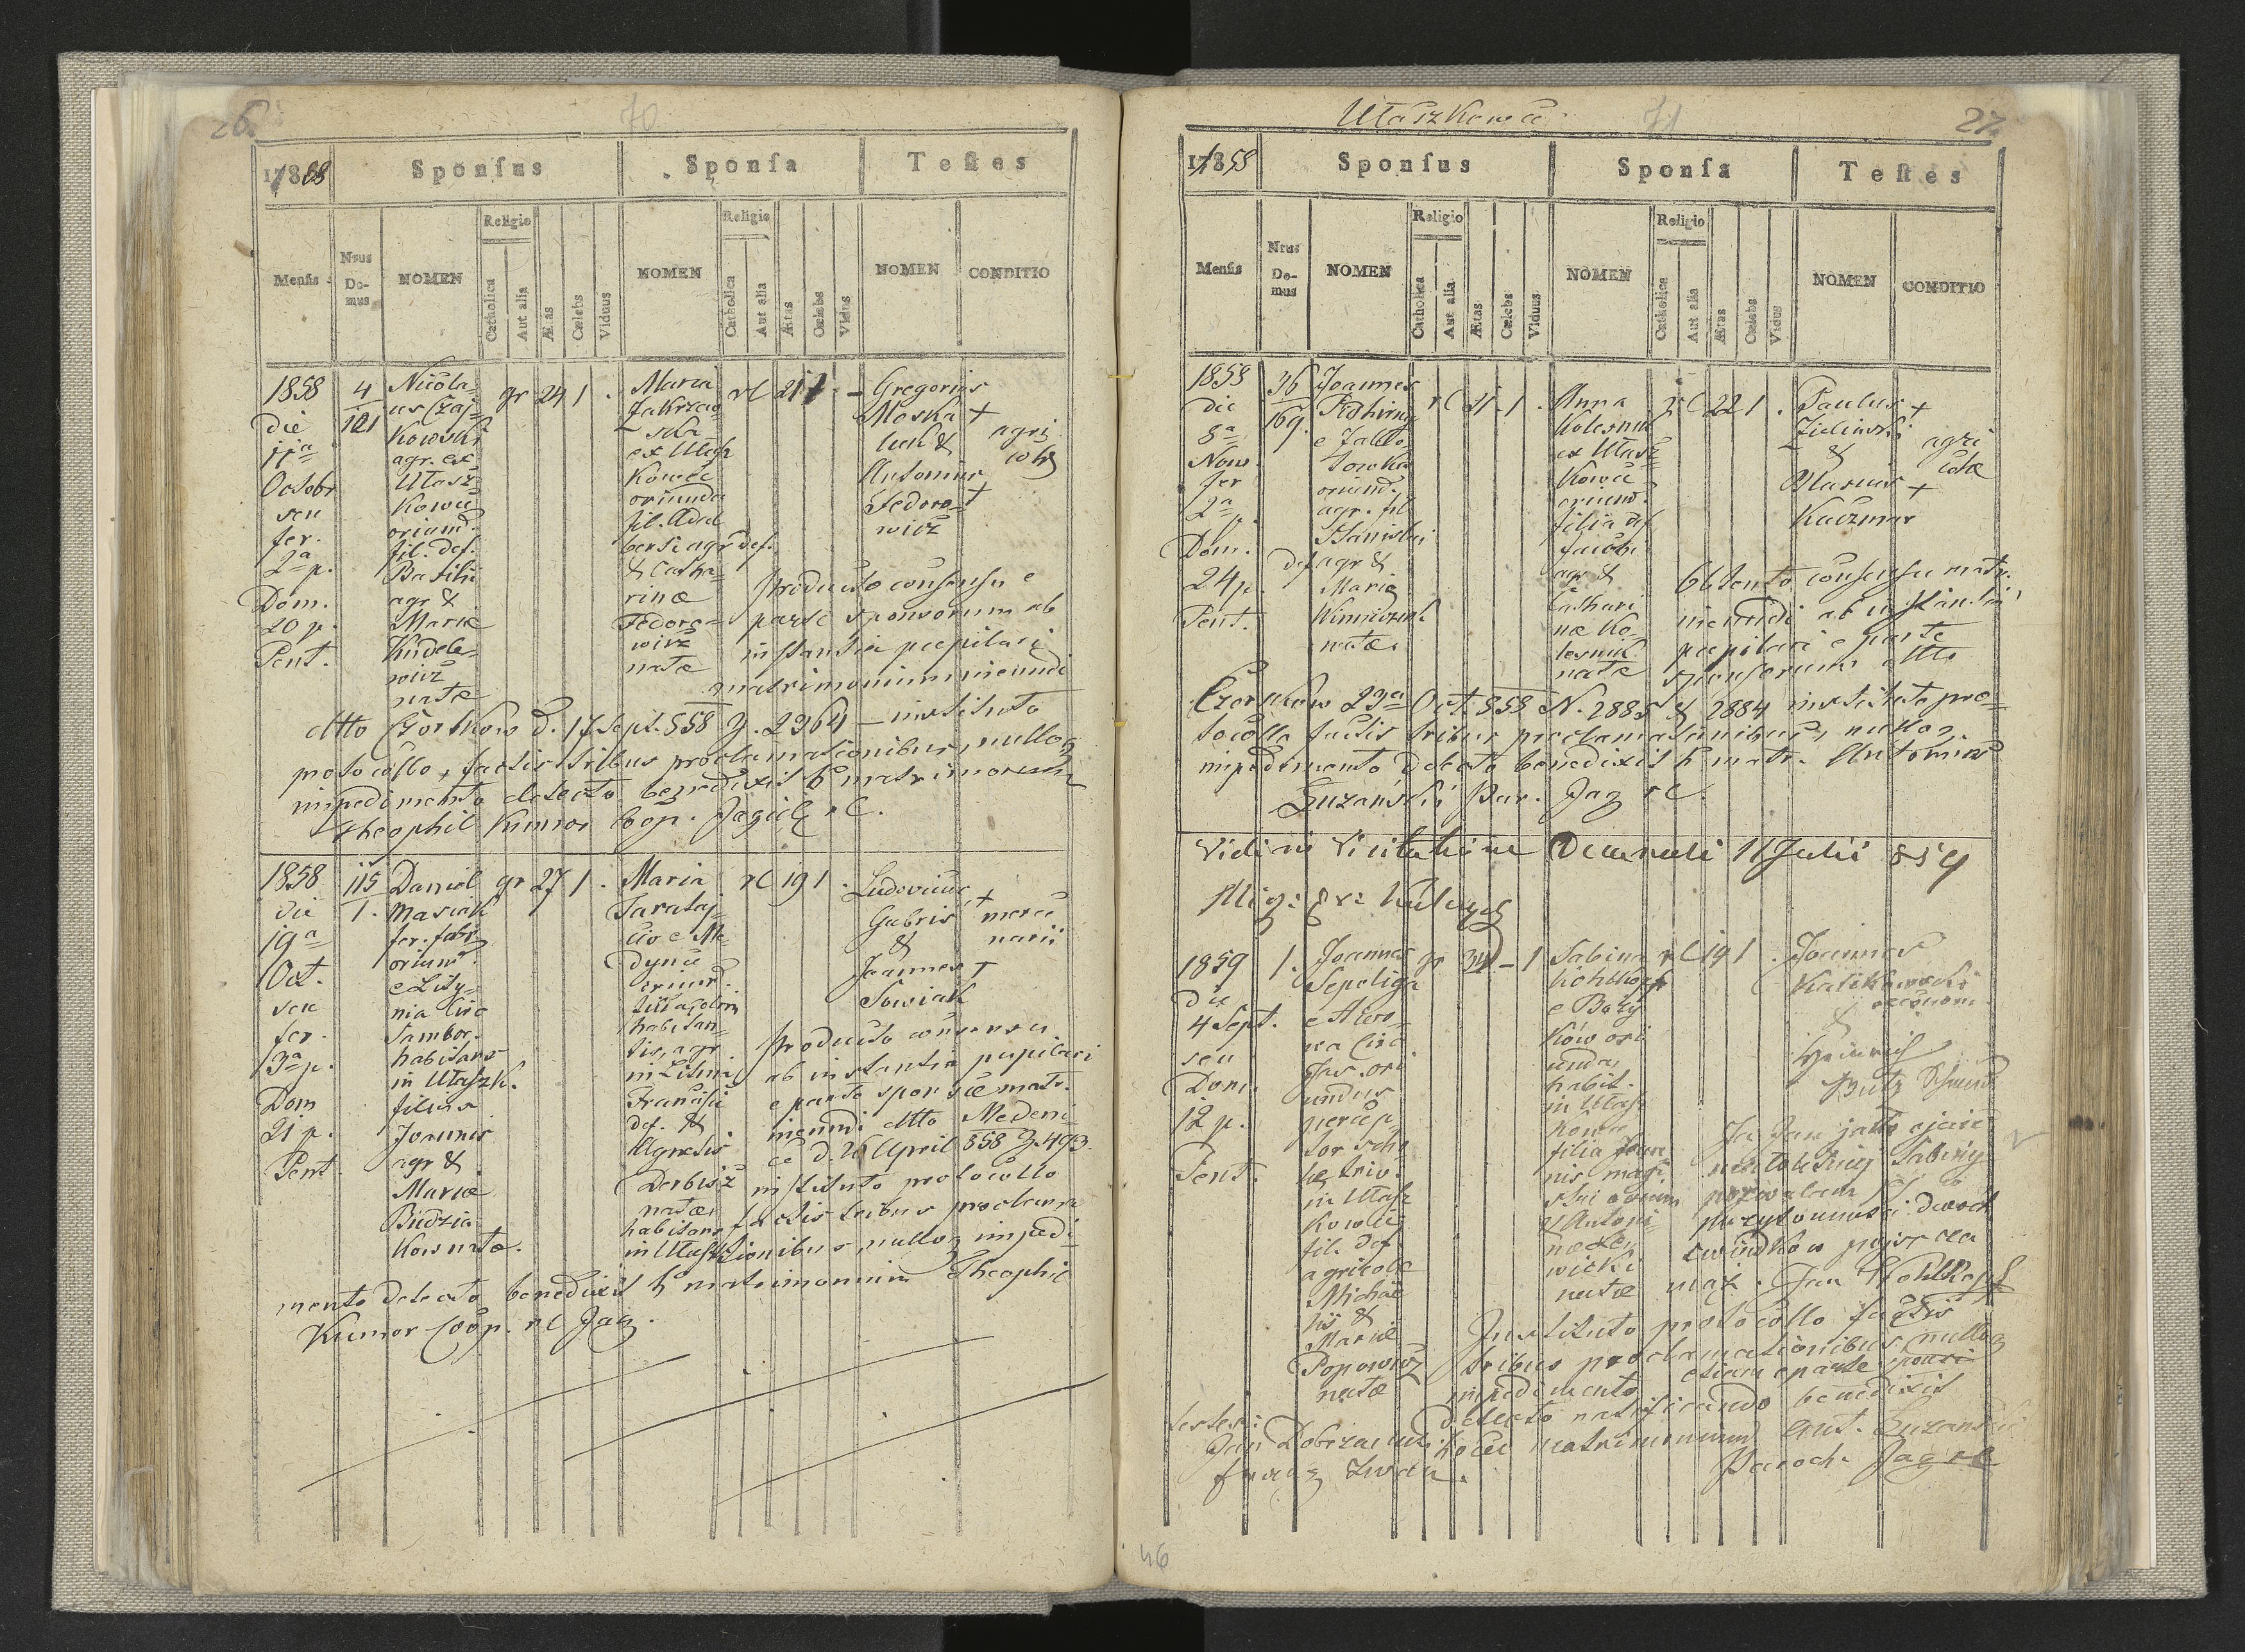 26.
70
1858
Sponsus
Sponsa
Testes
Mensis
Nrus Do-mus
NOMEN
Religio
Catholica
Aut alia
Ætas
Cœlebs
Viduus
NOMEN
Religio
Catholica
Aut alia
Ætas
Cœlebs
Vidua
NOMEN
CONDITIO
1858
die
11a
Octobr
seu
fer.
2a p.
Dom.
20 p.
Pent.
4
121
Nicola-
us Czaj-
kowski
agr. ex
Ułasz-
kowce
oriund.
fil. def.
Basilii
agr &
Mariæ
Kudele-
wicz
natæ
gr 24 1 .
Maria
Zakrzew-
ska
ex Ułasz
kowce
oriunda
fil. Adal
berti agr def.
& Catha-
rinæ
Fedoro-
wicz
natæ
rl 21 1 -
Gregorius
Moska +
&
Antonius
Fedoro- +
wicz
agri
colæ
Producto consensu e
parte sponsorum ab
instantia pupilari
matrimonium ineundi
dtto Czortkow d. 17 Sept. 858 Z. 2364 instituto
protocollo, factis tribus proclamationibus, nulloq
impedimento detecto benedixit h matrimonium
Theophil Kumor Coop. Jagiel rl.
1858
die
19a
Oct.
seu
fer.
3a p.
Dom
21 p.
Pent.
115
1.
Daniel
Masiak
fer. fabr
oriund.
e Lity-
nia Circ
Sambor.
habitans
in Ułaszk.
filius
Joannis
agr &
Mariæ
Budzia
kow natæ.
gr 27 1 .
Maria
Tarataj-
cio e Me-
dynie
oriund.
filia olim
habitan-
tis, agr.
Francisci
def. &
Agnetis
Derbisz
natæ,
habitans
in Ułaszk
rl 19 1 .
Ludovicus +
Gabris
&
Joannes +
Sowiak
merce
narii
Producto consensu
ab instantia pupilari
e parte sponsæ matr.
ineundi dtto Medeni-
ce d. 26 April 858 Z. 493.
instituto protocollo
factis tribus proclama
tionibus, nulloq impedi-
mento detecto benedixit h matrimonium Theophil
Kumor Coop. rl Jag.
Ułaszkowce
71
27.
1858
Sponsus
Sponsa
Testes
Mensis
Nrus Do-mus
NOMEN
Religio
Catholica
Aut alia
Ætas
Cœlebs
Viduus
NOMEN
Religio
Catholica
Aut alia
Ætas
Cœlebs
Vidua
NOMEN
CONDITIO
1858
die
8a
Nov.
fer
2a p.
Dom.
24 p.
Pent.
36
169.
Joannes
e Jabło-
nowka
oriund.
agr. fil
Stanislai
def agr &
Mariæ
natæ.
rl 21 - 1 .
Anna
Kolesnik
ex Ułasz-
kowce
oriund.
filia def
Jacobi
agr &
Cathari
næ Ko-
lesnik
natæ
rl 22 1 .
Paulus +
Zielinski
&
Blasius +
Kaczmar
agri
colæ
Obtento consensu matr.
ineundi ab instantia
pupilari e parte
sponsorum dtto
Czortkow 23a Oct. 858 N. 2885 & 2884 instituto pro-
tocollo factis tribus proclamationibus, nulloq
impedimento detecto benedixit h matr. Antonius
Luzański Par. Jag rl.
Vidi in Visitatione Decanali 11 Julii 859
1859
die
4 Sept.
seu
Dom.
12 p.
Pent.
1.
Joannes
Sepeliga
gr 34 - 1
oriundus
in Ułasz
kowce
fil. def
agricolæ
Michae
lis &
Mariæ
Popowicz
natæ
Sabina
Kohlkopf
oriunda,
habit.
in Ułasz
kowce
filia Joan
nis
& Antoni
næ
wicki
natæ
rl 19 1 .
Joannes
Kalikowski
oeconom.
&
Heinrich
Butz Schmid
Ja Jan jako ojciec
nieletniej Sabiny
pozwalam w
przytomności dwóch
świadkow pojść za
mąż. Jan Kohlkopf
Instituto protocollo factis
tribus proclamationibus nulloq
impedimento etiam e parte sponsi
detecto benedixit
hocce matrimonium Ant. Luzanski
Paroch. Jag rl
testes:
Jan
46